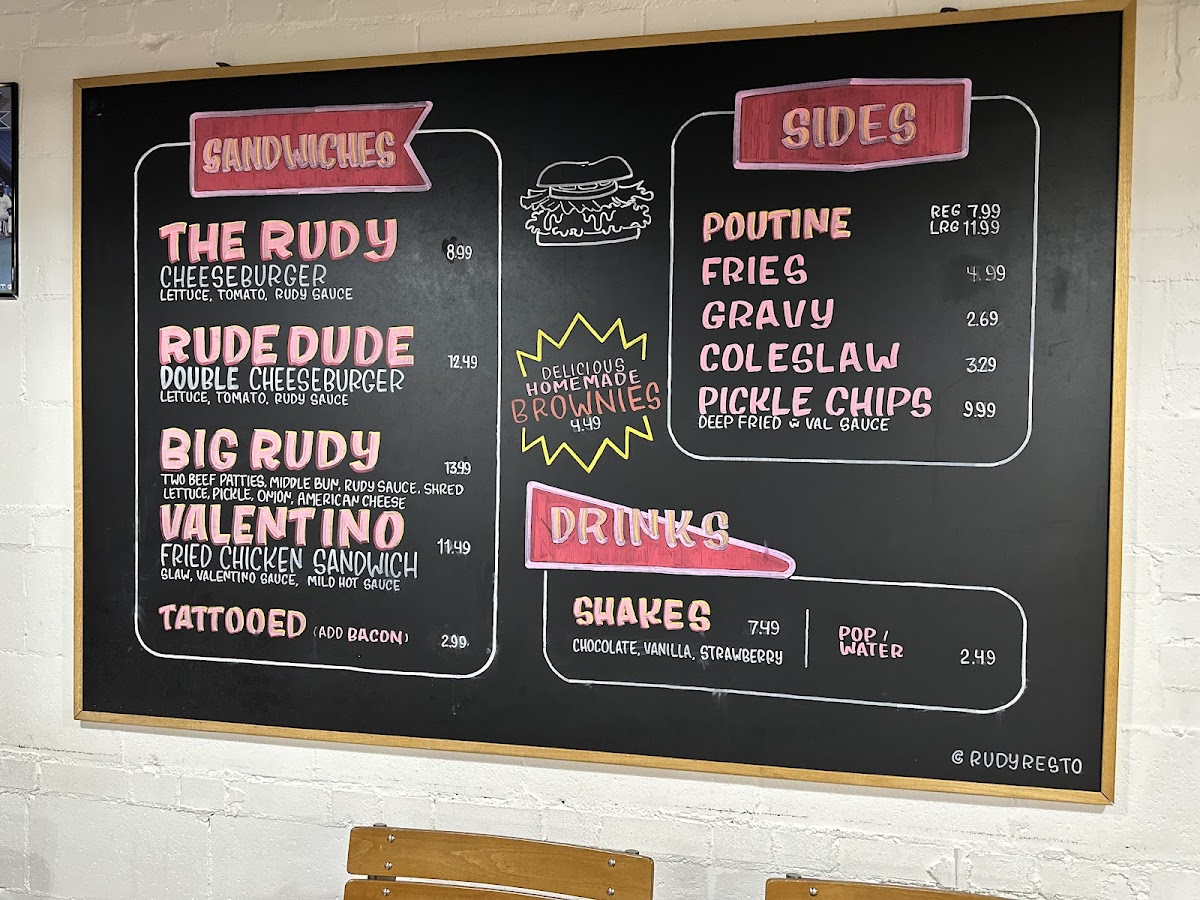 SANDWICHES
THE RUDY 8.99
CHEESEBURGER
LETTUCE, TOMATO, RUDY SAUCE
RUDE DUDE 12.49
DOUBLE CHEESEBURGER
LETTUCE, TOMATO, RUDY SAUCE
BIG RUDY 13.99
TWO BEEF PATTIES, MIDDLE BUN, RUDY SAUCE, SHRED
LETTUCE, PICKLE, ONION, AMERICAN CHEESE
VALENTINO 11.49
FRIED CHICKEN SANDWICH
SLAW, VALENTINO SAUCE, MILD HOT SAUCE
TATTOOED (ADD BACON) 2.99
DELICIOUS
HOMEMADE
BROWNIES
4.49
SIDES
POUTINE REG 7.99
LRG 11.99
FRIES 4.99
GRAVY 2.69
COLESLAW 3.29
PICKLE CHIPS 9.99
DEEP FRIED w VAL SAUCE
DRINKS
SHAKES 7.49
CHOCOLATE, VANILLA, STRAWBERRY
POP /
WATER 2.49
@RUDYRESTO